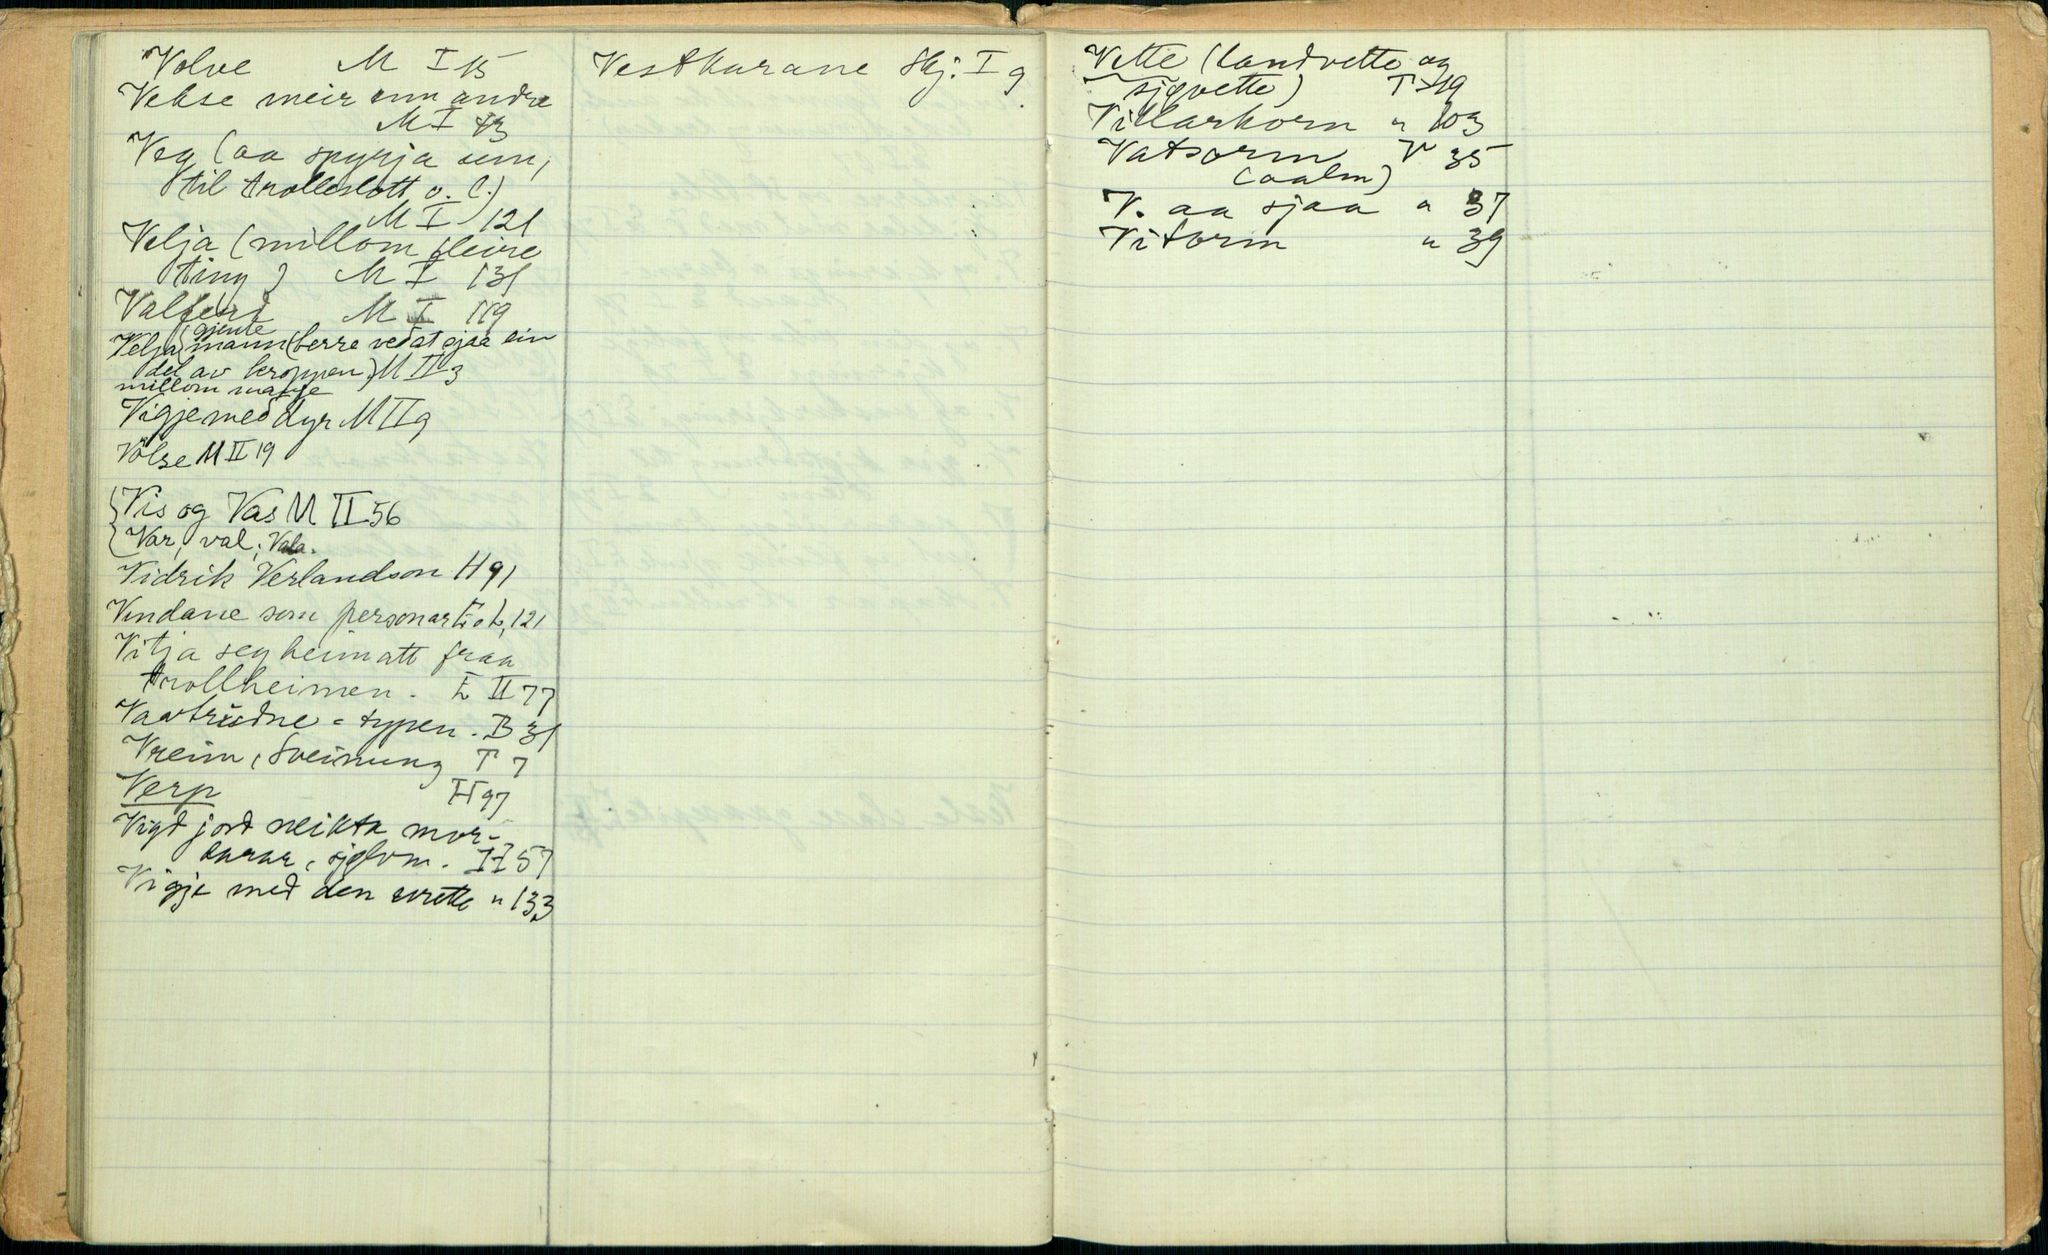 Volve M I 15
Vekse meir enn andre
M I 43
Veg (aa spyrja um,
til trolleslott o. l.)
M I 121
Velja (millom fleire
ting) M I 131
Valferd M I 119
gjente
Velja mann (berre ved at sjaa ein
del av kroppen) M II 3
millom mange
Vigje med dyr M II 9
Volse M II 19
Vis og Vas M II 56
Var, val; Vala.
Vidrik Verlandson H 91
Vindane som personar 121
Vitja seg heimatt fraa
trollheimen. L II 77
Vavtrudne-typen. B 31
Vreim, Sveinung T 7
Verp H 97
Vigd jord neikta mor-
darar, sjølvm. H 57
Vigje med den " 133
Vestkarane Skj. I 9
Vette (landvette og
sjøvette) T 19
Villarkorn " 103
Vatsorm V 35
(aalm)
V. aa sjaa " 37
Vitorm " 39